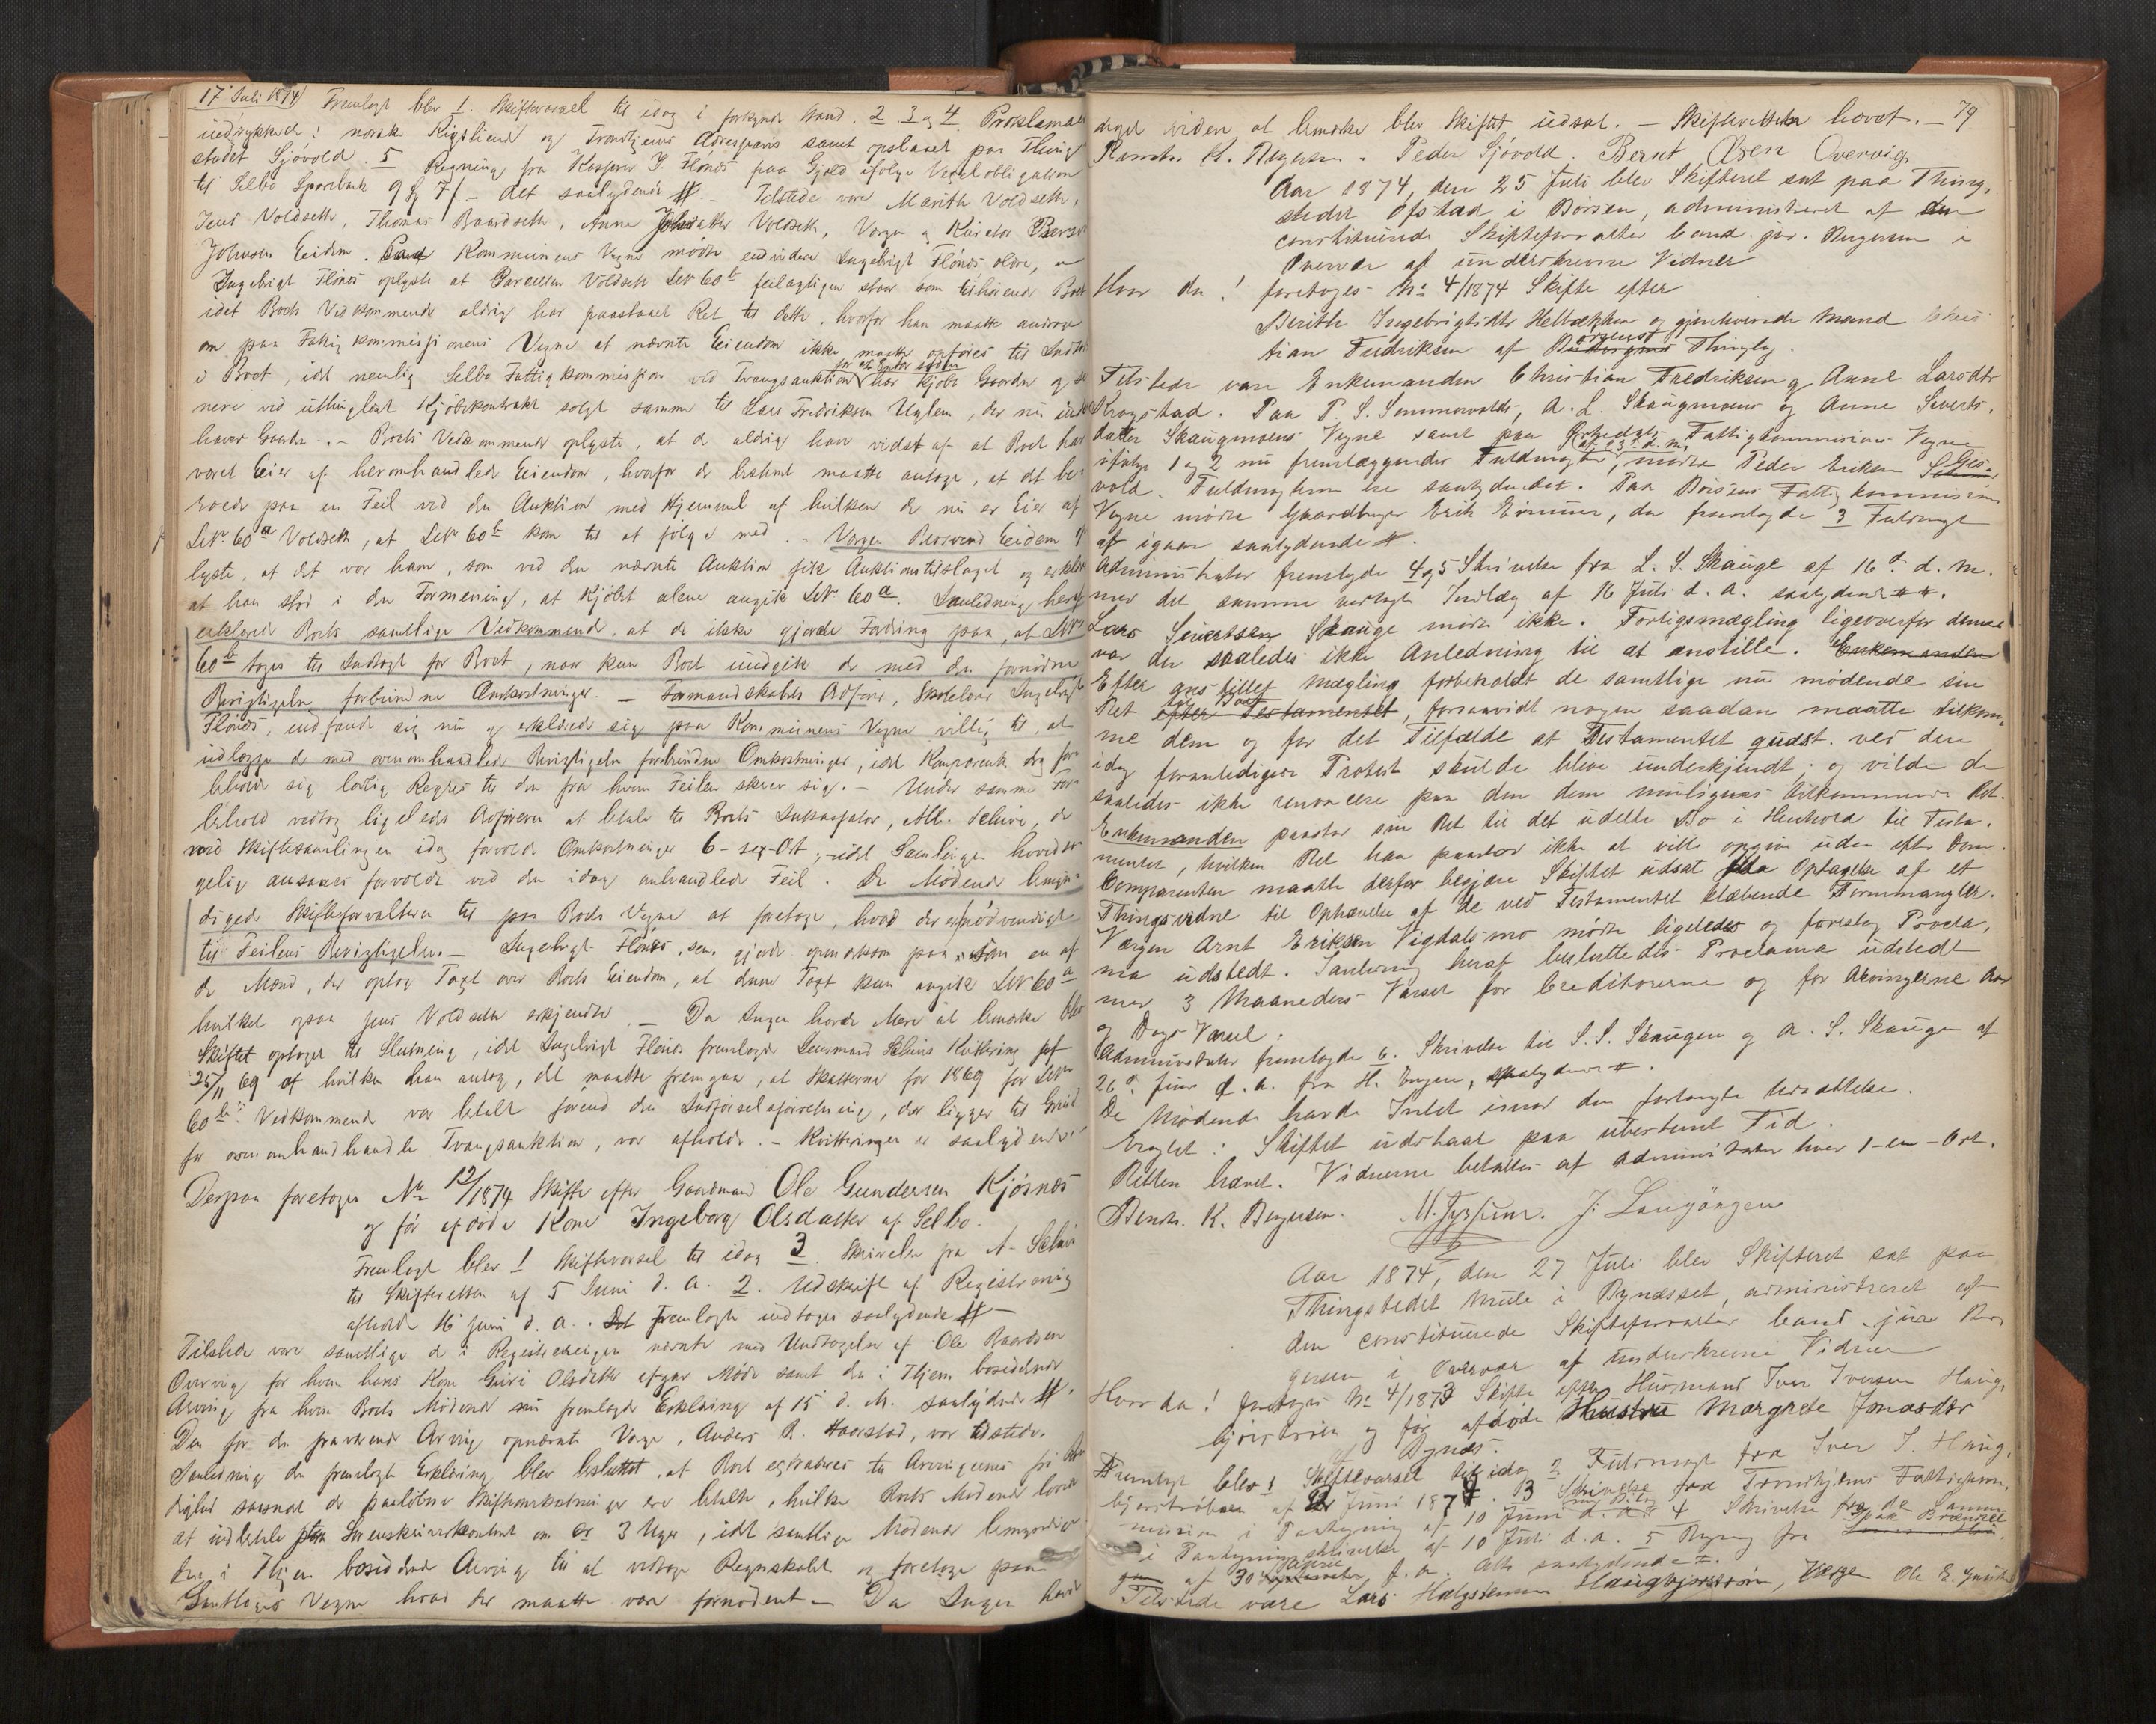 17 Juli 1874
Fremlagt blev 1. Skiftevarsel til idag i forkyndt Stand. 2. 3 og 4. Proklama
indrykket i norsk Rigstidende og Trondhjems Adresseavis samt opslaaet paa Thing
stedet Sjøvold. 5 Regning fra Kasserer J. Flønes paa Gjæld ifølge Vexelobligation
til Selbo Sparebank 9 7 - alt saalydende #. - Tilstede vare Marith Voldseth,
Jens Voldseth, Thomas Baardseth, Anne Voldseth, Verge og Kurator
Johnsen Eidem. Paa Kommunens Vegne mødte endvidere Ingebrigt Flønes oldre,
Ingebrigt Flønes oplyste at Parcellen Voldseth Litr 60b feilagtigen staar som tilhørende Boet
idet Boets Vedkommende aldrig har paastaaet Ret til dette, hvorfor han maatte andrage
om paa Fattigkommissionens Vegne at nævnte Eiendom ikke maatte opføres til Indtægt
i Boet, idet nemlig Selbo Fattigkommission ved Tvangsauktion for siden har kjøbt Gaarden og se
nere ved uthinglæst Kjøbekontrakt solgt samme til Lars Fredriksen Uglem, der nu inde
haver Gaarden. - Boets Vedkommende oplyste, at de aldrig have vidst af at Boet har
været Eier af heromhandlede Eiendom, hvorfor de bestemt maatte antage, at det be
roede paa en Feil ved den Auktion med Hjemmel af hvilken de nu er Eier af
Litr. 60a Voldseth, at Litr 60b kom til at følge med. - Verge Eidem op
lyste, at det var ham, som ved den nævnte Auktion fik Auktionstilslaget og erklærede
at han stod i den Formening, at Kjøbet alene angik Litr. 60a. I Anledning heraf
erklærede Boets samtlige Vedkommende at de ikke gjorde Fordring paa, at Litr
60b toges til Indtægt for Boet, naar kun Boet undgik de med den fornødne
Berigtigelse forbundne Omkostninger. - Formandskabets Ordfører, Skolelærer Ingebrigt
Flønes, indfandt sig nu og erklærede sig paa Kommunens Vegne villig til at
udlægge de med ovenomhandlede Berigtigelse forbundne Omkostninger, idet Komparenten dog for
beholdt sig lovlig Regres til den fra hvem Feilen skrev sig. - Under samme For
behold vedtog ligeledes Ordføreren at betale til Boets Inkassator, Schive, de
med Skiftesamlingen idag forvoldte Omkostninger 6 - sex - Ort, - idet Samlingen hovedsa
gelig ansaaes forvoldt ved den idag omhandlede Feil. De Mødende bemyn-
digede Skifteforvalteren til paa Boets Vegne at foretage, hvad der er nødvendigt
til Feilens Berigtigelse. - Ingebrigt Flønes, sen. gjorde opmærksom paa, som en af
de Mænd, der optog Taxt over Boets Eiendom, at denne Taxt kun angik Litr 60a
hvilket ogsaa Jens Voldseth erkjendte. - Da Ingen havde Mere at bemærke blev
Skiftet optaget til Slutning, idet Ingebrigt Flønes fremlagde Lensmand Schives Kvittering af
25/11 69 af hvilken han antog, det maatte fremgaa, at Skatterne for 1869 for Litr
60b Vedkommende var betalt forend den Indførselsforretning, der ligger til Grund
for ovenomhandlede Tvangsauktion, var afholdt. - Kvitteringen er saalydende:
Derpaa foretoges No 12/1874 Skifte efter Gaardmand Ole Gundersen Kjøsnæs
og før afdøde Kone Ingeborg Olsdatter af Selbo.
Fremlagt blev 1 Skiftevarsel til idag 3. Skrivelse fra A. Schive
til Skifteretten af 5 Juni d. A. 2. Udskrift af Registrering
afholdt 16 Juni d. A. Det fremlagte indtages saalydende #
Tilstede vare samtlige de i Registreringen nævnte med Undtagelse af Ole Baardsen
Overvig for hvem hans Kone Guri Olsdatter afgav Møde samt den i Thjem bosiddende
Arving fra hvem Boets Mødende nu fremlagde Erklæring af 15 d. M. saalydende #.
Den for den fraværende Arving opnævnte Verge, Anders R. Haarstad, var tilstede.
I Anledning den fremlagte Erklæring blev besluttet, at Boet extraderes til Arvingernes fri Raa
dighed saasnart de paaløbne Skifteomkostninger ere betalte, hvilke Boets Mødende lovede
at indbetale paa Sorenskriverkontoret om 3 Uger, idet samtlige Mødende bemyndigede
den i Thjem bosiddende Arving til at vedtage Regnskabet og foretage paa
Samtliges Vegne hvad der maatte være fornødent - Da Ingen havde
79
noget videre at bemærke blev Skiftet udsat. - Skifteretten hævet. -
Konst. K. Bergersen. Peder Sjøvold. Bernt Olsen Overvig.
Aar 1874, den 25 Juli blev Skifteret sat paa Thing,
stedet Ofstad i Børsen, administreret af den
constituerede Skifteforvalter Cand. jur. Bergersen i
Overvær af underskrevne Vidner
Hvor da! foretoges No 4/1874 Skifte efter
Berith Ingebrigtsdtr Helbækken og gjenlevende Mand Chris
tian Fredriksen af Børsens Thinglag.
Tilstede vare Enkemanden Christian Fredriksen og Anne Larsdtr
Krogstad. Paa P. S. Sommervolds, A. L. Skaugmoens og Anne Siverts,
datter Skaugmoens Vegne samt paa Orkedals Fattigkommissions Vegne
ifølge 1 og 2 nu fremlæggende Fuldmagter af 23 d. M., mødte Peder Eriksen Gjøs-
vold. Fuldmagterne ere saalydende. Paa Børsens Fattigkommissions
Vegne mødte Gaardbruger Erik Eriksen, der fremlagde 3 Fuldmagt
af igaar saalydende #.
Administrator fremlagde 4 og 5 Skrivelse fra L. S. Skauge af 16d d. M.
med det samme vedlagte Indlæg af 16 Juli d. A. saalydende # #.
Lars Sivertsen Skauge mødte ikke. Forligsmægling ligeoverfor denne
var der saaledes ikke Anledning til at anstille. Enkemanden
Efter anstillet Mægling forbeholdt de samtlige nu mødende sin
Ret til Boet efter Testamentet, forsaavidt nogen saadan maatte tilkom-
me dem og for det Tilfælde at Testamentet gudst. ved den
idag foranledigede Protest skulde blive underkjendt; og vilde de
saaledes ikke renoncere paa den dem muligens tilkommende Ret.
Enkemanden paastod sin Ret til det udelte Bo i Henhold til Testa-
mentet, hvilken Ret han paastod ikke at ville opgive uden efter Dom.
Comparenten maatte derfor begjære Skiftet udsat til Optagelse af et
Thingsvidne til Ophævelse af de ved Testamentet klæbende Formmangler.
Værgen Arnt Eriksen Vigdalsmo mødte ligeledes og foreslog Procla-
ma udstedt. I Anledning heraf besluttedes Proclama udstedt
med 3 Maaneders Varsel for Creditorerne og for Arvingerne Aar
og Dags Varsel.
Administrator fremlagde 6. Skrivelse til S. S. Skaugen og A. S. Skaugen af
26d Juni d. A. fra H. Engen, saalydende #.
De Mødende havde Intet imod den forlangte Udsættelse.
Eragtet: Skiftet udstaar paa ubestemt Tid.
Retten hævet. Vidnerne betaltes af Administrator hver 1 - en - Ort.
Konst. K. Bergersen. J. Langørgen
Aar 1874, den 27 Juli blev Skifteret sat paa
Thingstedet Mule i Bynæsset, administreret af
den constituerede Skifteforvalter Cand. jur. Ber,
gersen i Overvær af underskrevne Vidner
Hvor da! foretoges No 4/1873 Skifte efter Husmand Iver Iversen Haug,
bjørstrøen og før afdøde Hustru Margrete Jonasdtr
af Bynæs.
Fremlagt blev 1 Skiftevarsel til idag 2 Fuldmagt fra Iver I. Haug,
bjørstrøen af Juni 1874. 3 Skrivelse fra Trondhjems Fattigkom,
mission i Paategning af 10 Juni d. A. 4 Skrivelse fra de
i Paategningsskrivelse af 10 Juli d. A. 5 Regning fra
af 30 April f. A. Alt saalydende #.
Tilstede vare Lars Haugbjørstrøen, Verge Ole E.